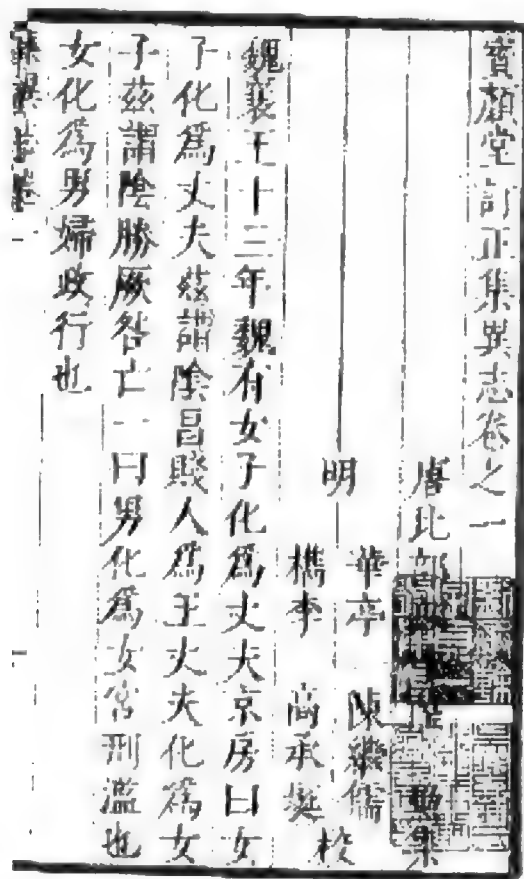 寶顏堂訂正集異志卷之一
唐比部 勳集
明 華亭 陳繼儒
檇李 高承埏 校
魏襄王十三年魏有女子化爲丈夫京房曰女
子化爲丈夫茲謂陰昌賤人爲王丈夫化爲女
子茲謂陰勝厥咎亡一曰男化爲女宮刑濫也
女化爲男婦政行也